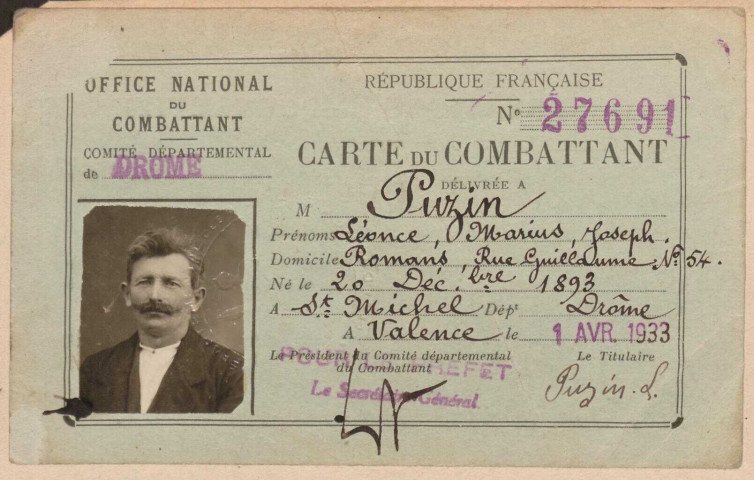 OFFICE NATIONAL
DU
COMBATTANT
COMITÉ DÉPARTEMENTAL
de DRÔME
RÉPUBLIQUE FRANÇAISE
No 27691
CARTE DU COMBATTANT
DÉLIVRÉE A
M Puzin
Prénoms Léonce, Marius, Joseph.
Domicile Romans, Rue Guillaume No 54.
Né le 20 Déc.bre 1893
A St Michel Dépt Drôme
A Valence le 1 AVR. 1933
Le Président du Comité départemental
du Combattant
Le Titulaire
POUR LE PREFET.
Le Secrétaire Général
Puzin. L.